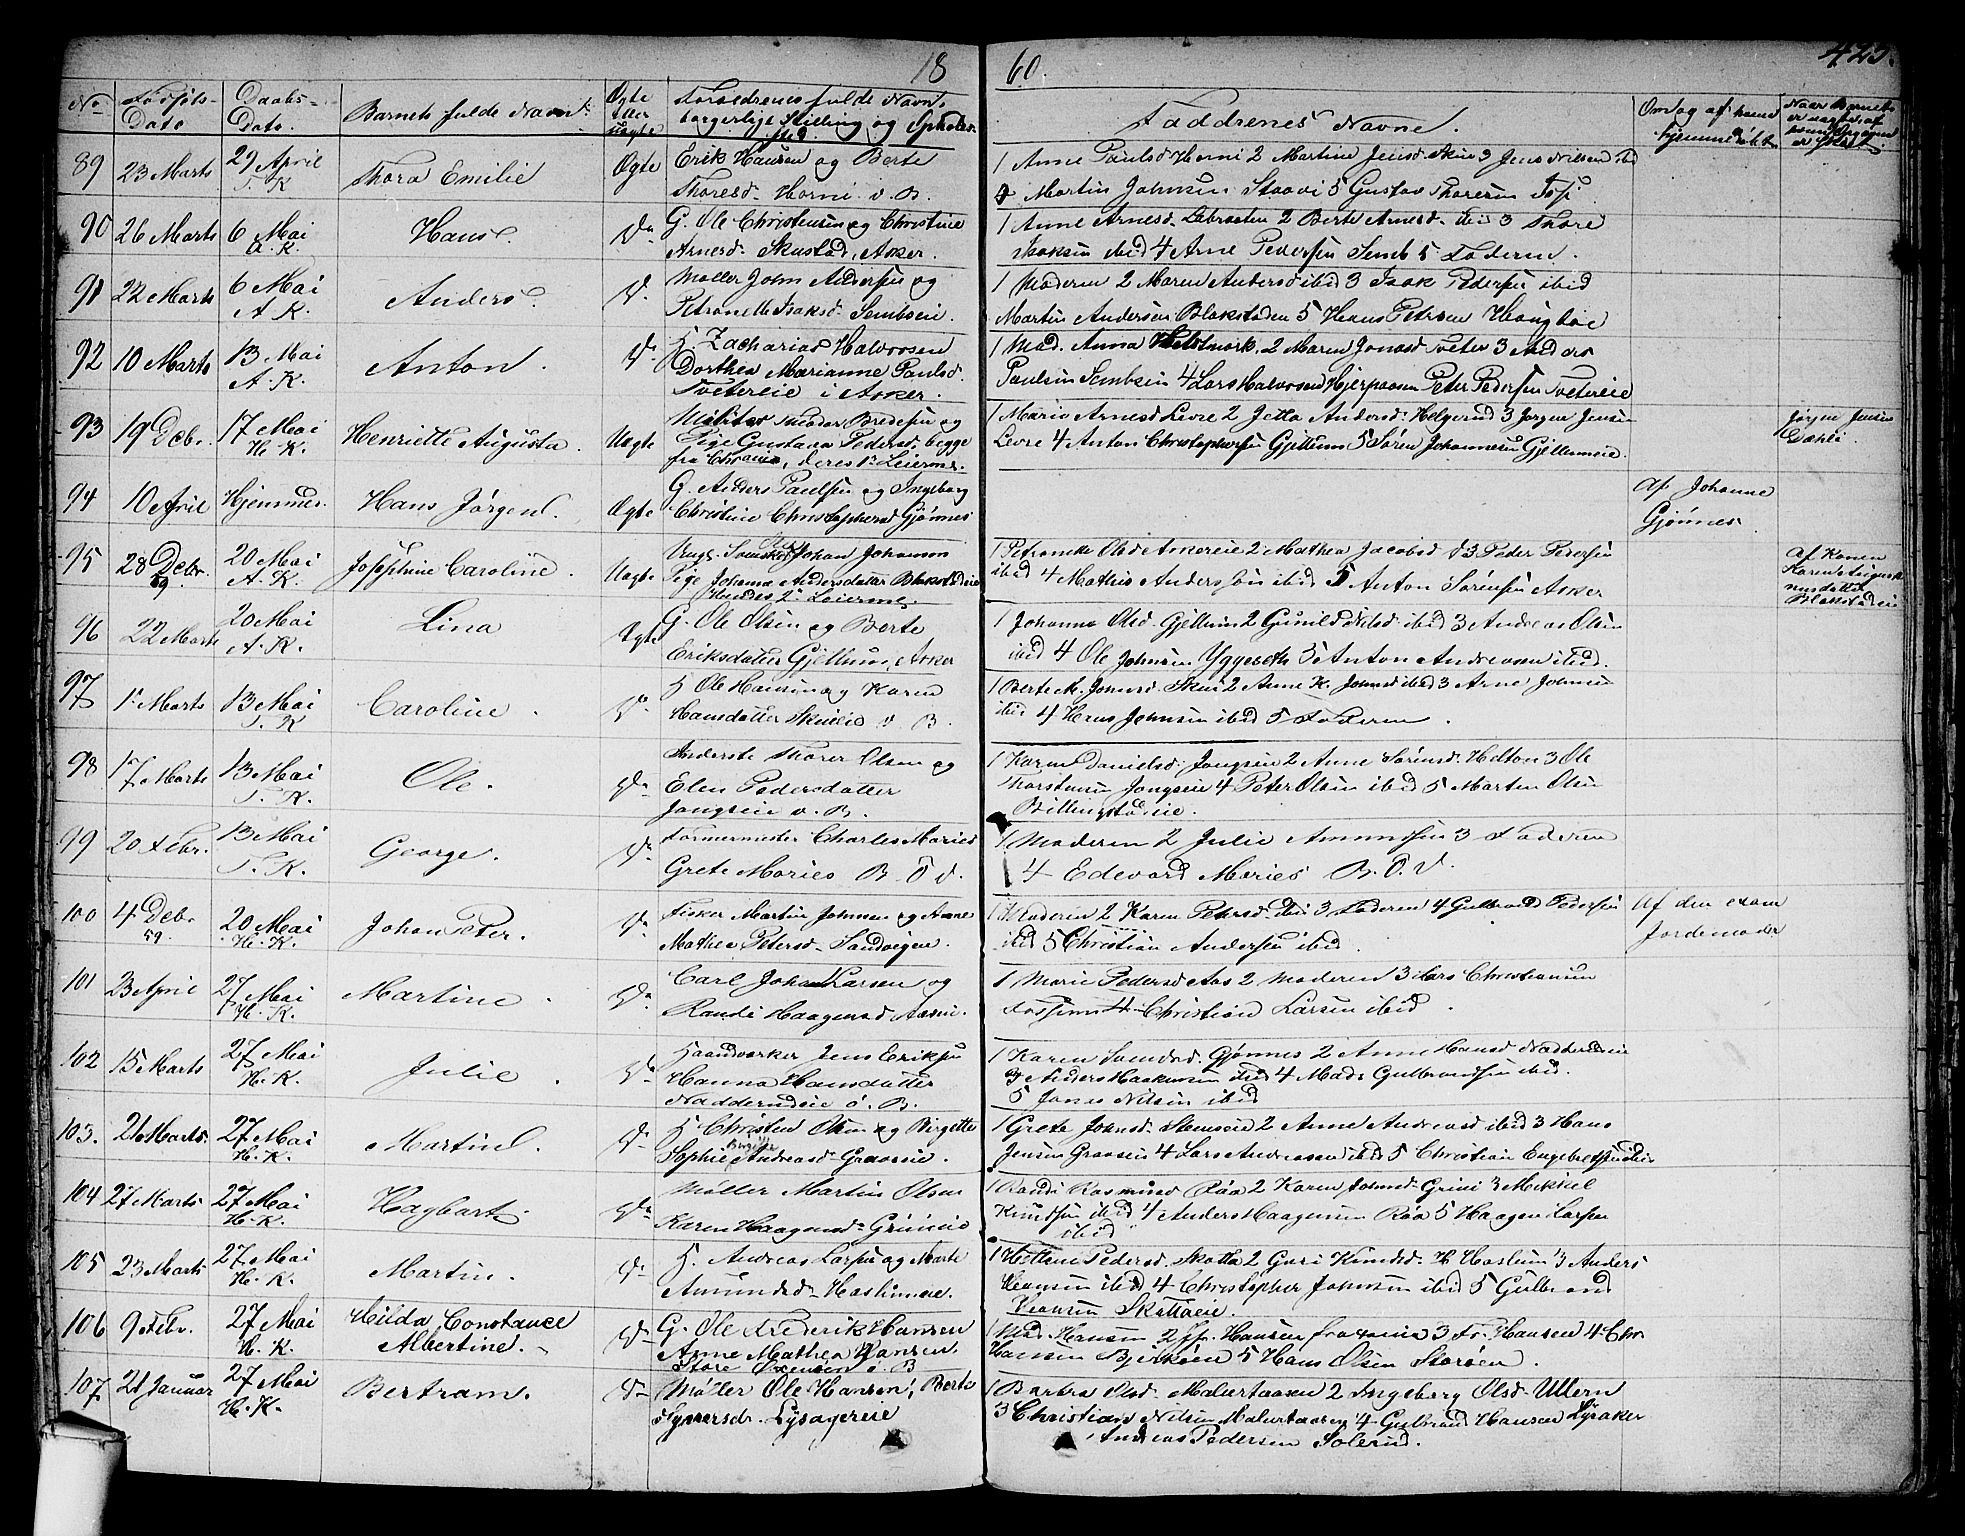 18 60. 425.
No Fødsels- Dato Daabs- Dato. Barnets fulde Navn. Ægte eller uægte Forældrenes fulde Navn, borgerlige Stilling og Opholds- sted. Faddrenes Navne.
89 23 Marts 29 April T. K Thora Emilie Ægte Erik Hansen og Berte
Thoresd. Horni ø. B.
1 Anne Paulsd Horni 2 Martine Jensd. Skui 3 Jens Nilsen ibd
4 Martin Johnsen Staavi 5 Gustav Thoresen
90 26 Marts 6 Mai A. K. Hans. Do G. Ole Christensen og Christine
Arnesd. Skustad, Asker.
1 Anne Arnesd. Lebraaten 2 Berte Arnesd. ibid 3 Thore
Isaksen ibid 4 Arne Pedersen Semb 5 Faderen.
91 22 Marts 6 Mai A K. Anders. Do Møller John Andersen og
Petronelle Isaksd. Sembseie.
1 Moderen 2 Maren Andersd ibid 3 Isak Pedersen ibid
Martin Andersen Blakstaden 5 Hans Petersen Houghoe
92 10 Marts 13 Mai A. K. Anton. Do H. Zacharias Halvorsen
Dorthea Marianne Paulsd.
Tvetereie i Asker.
1 Mad. Anna 2 Maren Jonasd Tveter 3 Anders
Paulsen Sembseie 4 Lars Halvorsen Peter Pedersen Tvetereie
93 19 Debr. 17 Mai H. K. Henriette Augusta. Uægte Militær Bredesen og
Pige Gustava Pedersd. begge
fra Chrania, deres 1ste Leierm.
1 Marie Arnesd Levre 2 Jetta Andersd. Helgerud 3 Jørgen Jensen
Levre 4 Anton Christophersen Gjellum 5 Søren Johannesen Gjellumeie.
Jørgen Jensen
Dæhli.
94 10 April Hjemmed. Hans Jørgen. Ægte G. Anders Paulsen og Ingeborg
Christine Christophersd Gjønnes
Af Johanne
Gjønnes.
95 28 Debr. 59 20 Mai A. K. Josephine Caroline. Uægte Ungk. Svensken Johan Johansen
Pige Johanne Andersdatter Blakstadeie
Hendes 2t Leierm.
1 Petronelle Olsd Askereie 2 Mathea Jacobsd 3 Peter Pedersen
ibid 4 Mathis Anderssøn ibid 5 Anton Sørensen Asker
Af Konen
Karen
Blakstadeie
96 22 Marts 20 Mai A. K. Lina Ægte G. Ole Olsen og Berte
Eriksdatter Gjellum, Asker
1 Johanne Olsd Gjellum 2 Gunild Nilsd. ibid 3 Andreas Olsen
ibid 4 Ole Johnsen Yggeseth 5 Anton Andreassen ibid.
97 1ste Marts 13 Mai T. K Caroline. Do H Ole Hansen og Karen
Hansdatter Skuieie ø. B.
1 Berte M. Johnsd. Skui 2 Anne K. Johnsd ibid 3 Arne Johnsen
ibid 4 Hans Johnsen ibid 5 Faderen.
98 17 Marts 13 Mai T. K. Ole. Do Inderste Thorer Olsen og
Elen Pedersdatter
Jongseie v. B.
1 Karen Danielsd. Jongseie 2 Anne Sørensd. Helton 3 Ole
Thorstensen Jongseie 4 Peter Olsen ibid 5 Morten Olsen
Billingstadeie.
99 20 Febr. 13 Mai T. K. George. Do Formermester Charles Mories
Grete Mories B. O V.
1 Moderen 2 Julie Amundsen 3 Faderen
4 Edevard Mories B. O. V.
100 4 Debr 59. 20 Mai H. K. Johan Peter. Do Fisker Martin Johnsen og Anne
Mathea Petersd. Sandvigen.
1 Moderen 2 Karen Petersd. ibid 3 Faderen 4 Gulbrand Pedersen
ibid 5 Christian Andersen ibid.
Af den exam
Jordemoder
101 23 April 27 Mai H. K. Martine. Do Carl Johan Larsen og
Randi Haagensd
1 Marie Pedersd Aas 2 Moderen 3 Lars Christiansen
Fossum 4 Christian Larsen ibid.
102 15 Marts 27 Mai H. K. Julie. Do Haandværker Jens Eriksen
Hanna Hansdatter
Nadderudeie ø. B.
1 Karen Svendsd. Gjønnes 2 Anne Hansd Nadderudeie
3 Anders Haakensen ibid 4 Mads Gulbrandsen ibid.
5 Jonas Nilsen ibid
103. 21 Marts. 27 Mai H. K. Martin. Do H Christen Olsen og Birgette
Sophie Andreasd. Gravseie.
1 Grete Johnsd. 2 Anne Andreasd ibid 3 Hans
Jensen Gravseie 4 Lars Andreassen ibid 5 Christian Engebretsen ibid
104 27 Marts 27 Mai H. K. Hagbart. Do Møller Martin Olsen
Karen Haagensd. Grinieie
1 Randi Rasmusd Røa 2 Karen Johnsd. Grini 3 Mikkel
Knudsen ibid 4 Anders Haagensen Røa 5 Haagen Larsen
ibid
105 23 Marts 27 Mai H. K. Martin. Do H. Andreas Larsen og Marte
Amundsd. Haslumeie.
1 Pedersd. Skotta 2 Guri Knudsd. H Haslum 3 Anders
Hansen ibid 4 Christopher Johnsen ibid 5 Gulbrand
Hansen Skottaeie.
106 9 Febr. 27 Mai H. K. Hilda Constance
Albertine. Do G. Ole Frederik Hansen
Anne Mathea Hansen
Store Ø. B
1 Mad. Hansen 2 Jf. Hansen fra 3 Fr. Hansen 4 Chr.
Hansen Bjerkøen 5 Hans Olsen Storøen.
107. 21 Januar 27 Mai H. K. Bertram. Do Møller Ole Hansen, Berte
Lysagereie
1 Barbra Olsd. Malertaasen 2 Ingeborg Olsd. Ullern
3 Christian Nilsen Malertaasen 4 Gulbrand Hansen Lysaker
Andreas Pedersen Solerud.